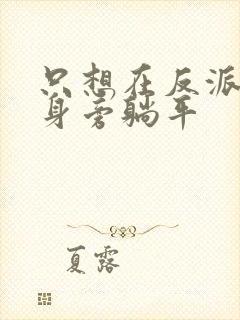 只想在反派
身旁躺平
夏露